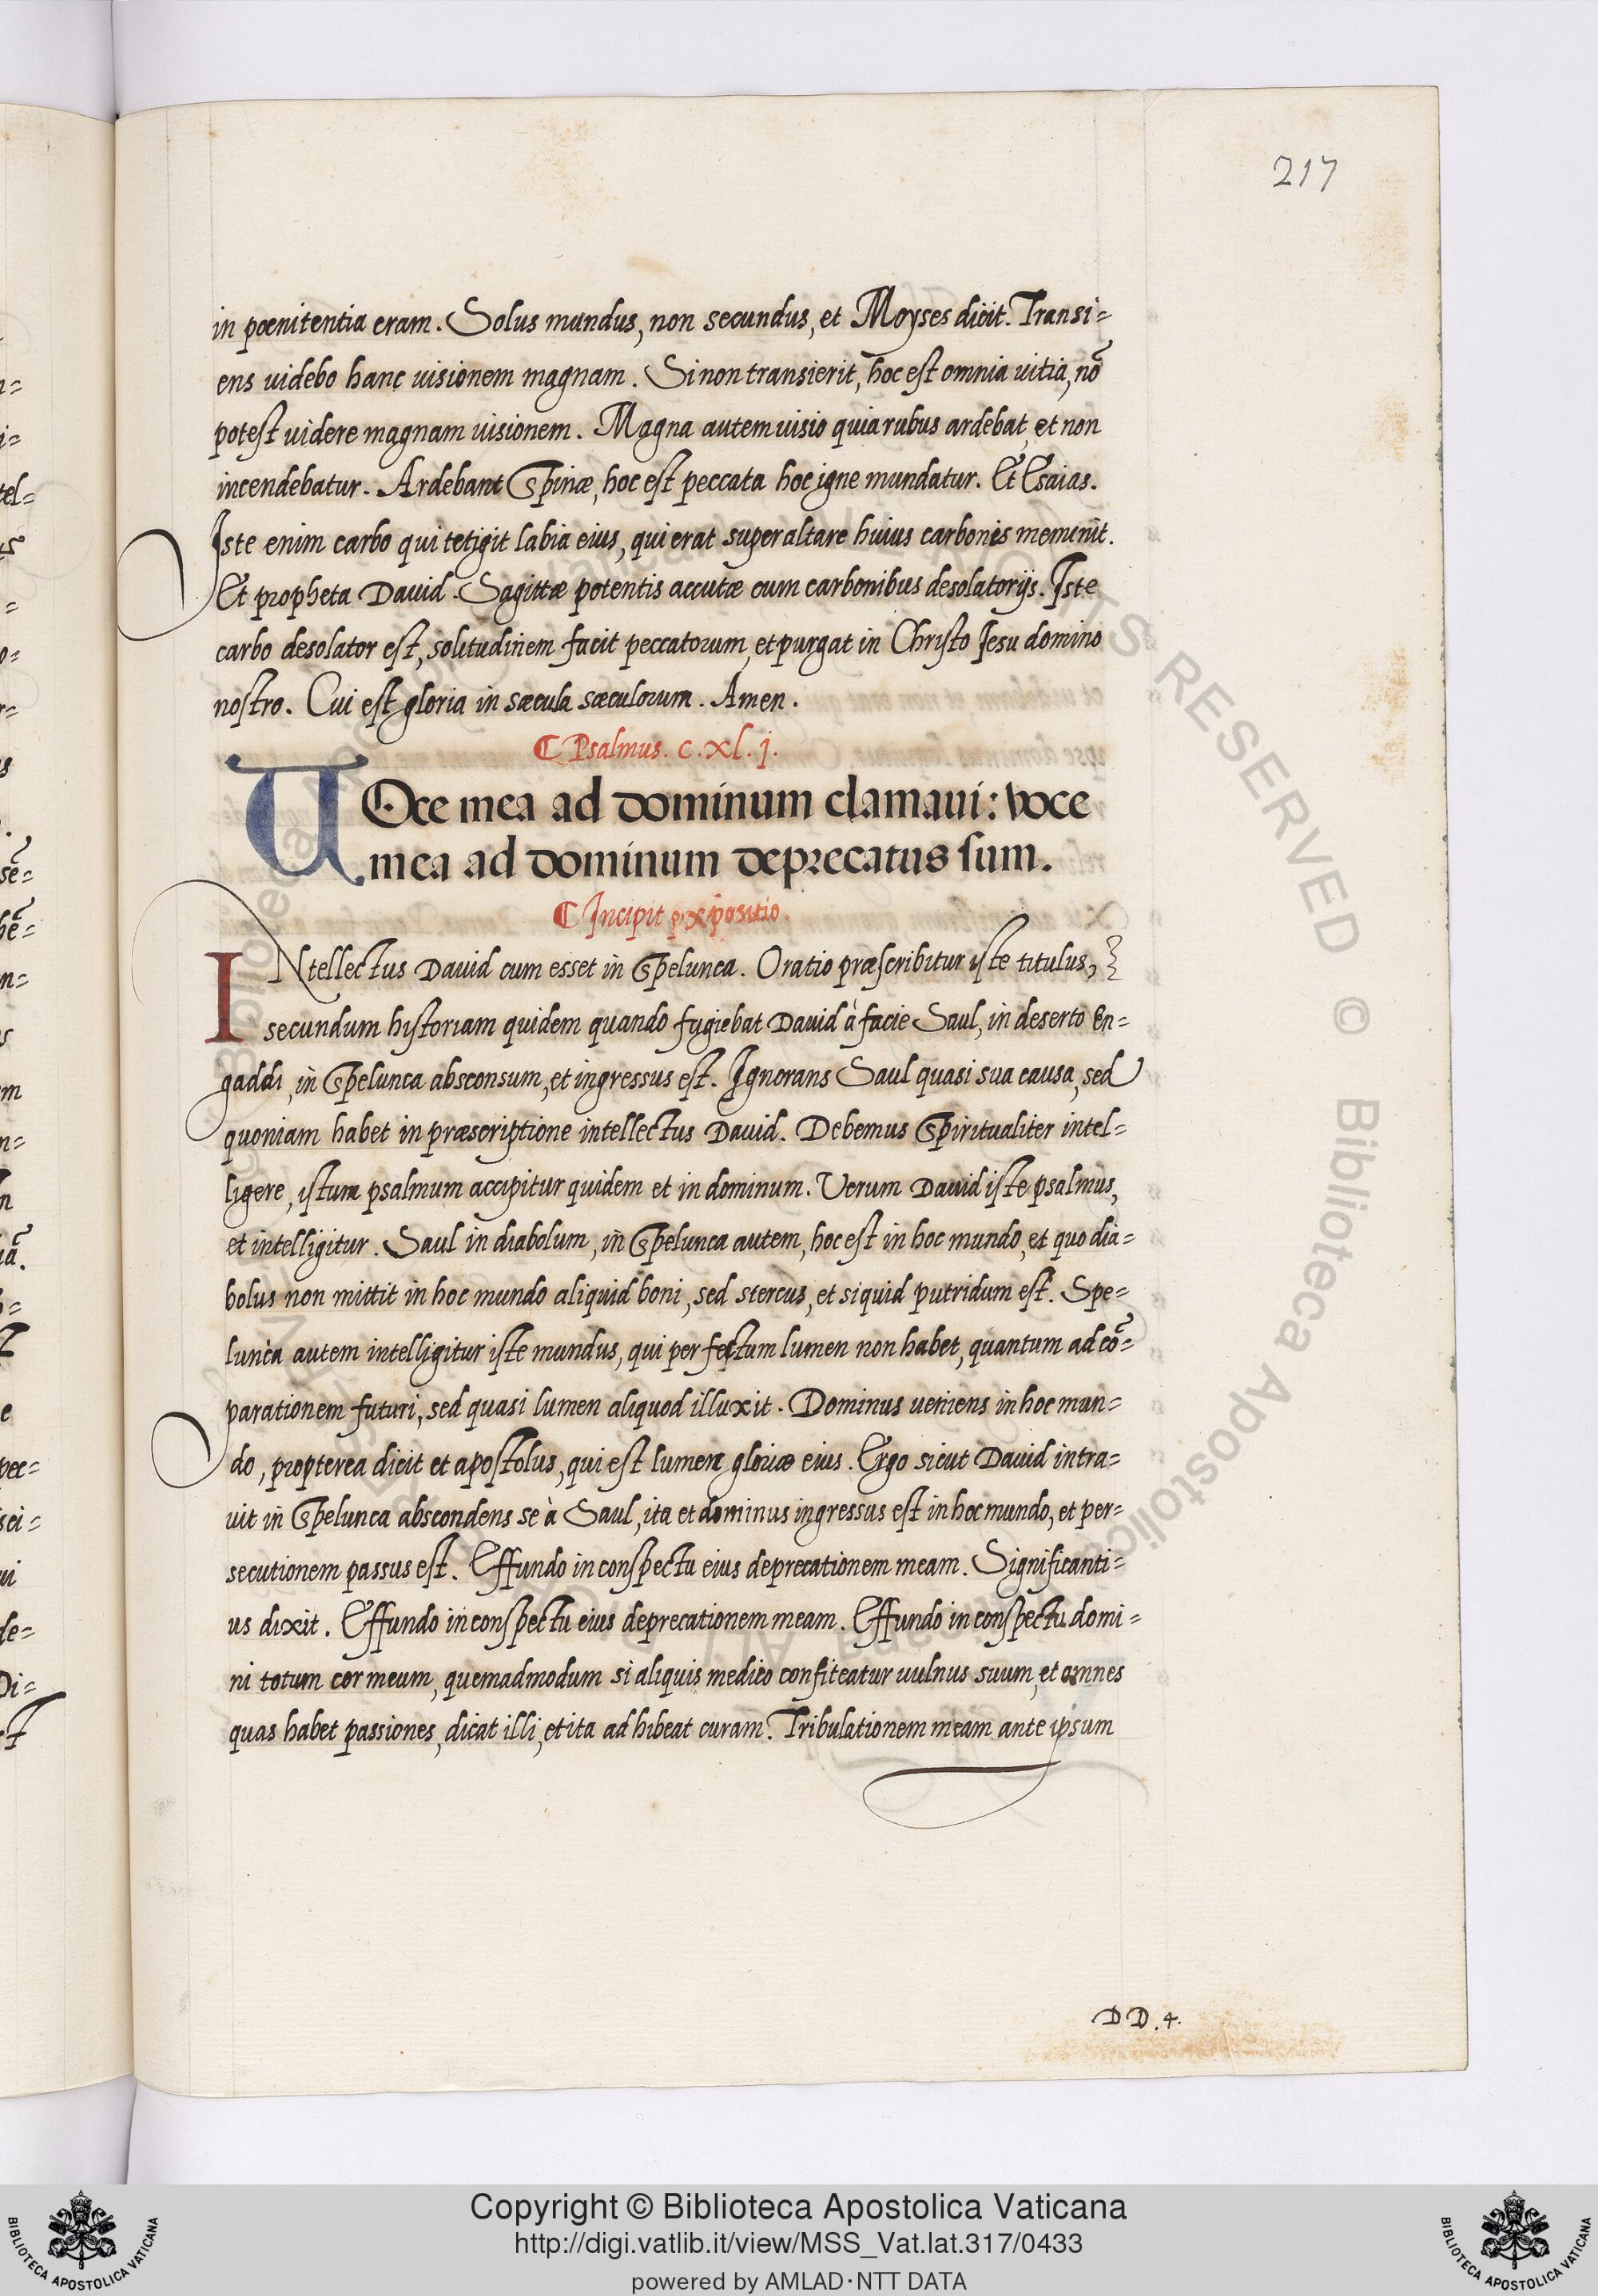 217
in pœnitentia eram. Solus mundus, non secundus, et Moyses dicit. Transi=
ens uidebo hanc uisionem magnam. Si non transierit, hoc est omnia uitia, nō
potest uidere magnam uisionem. Magna autem uisio quia rubus ardebat, et non
incendebatur. Ardebant Spinæ, hoc est peccata hoc igne mundatur. Et Esaias.
Iste enim carbo qui tetigit labia eius, qui erat super altare huius carbonis meminit.
Et propheta Dauid. Sagittæ potentis accutæ cum carbonibus desolatorijs. Iste
carbo desolator est, solitudinem facit peccatorum, et purgat in Christo Jesu domino
nostro. Cui est gloria in sæcula sæculorum. Amen.
¶ Psalmus. c.xl.j.
VOce mea ad dominum clamaui: voce
mea ad dominum deprecatus sum.
¶ Incipit expositio.
INtellectus Dauid cum esset in Spelunca. Oratio præscribitur iste titulus,
secundum historiam quidem quando fugiebat Dauid à facie Saul, in deserto En=
gaddi, in Spelunca absconsum, et ingressus est. Ignorans Saul quasi sua causa, sed
quoniam habet in præscriptione intellectus Dauid. Debemus Spiritualiter intel=
ligere, istum psalmum accipitur quidem et in dominum. Verum Dauid iste psalmus,
et intelligitur. Saul in diabolum, in Spelunca autem, hoc est in hoc mundo, et quo dia=
bolus non mittit in hoc mundo aliquid boni, sed stercus, et siquid putridum est. Spe=
lunca autem intelligitur iste mundus, qui perfectum lumen non habet, quantum ad cō=
parationem futuri, sed quasi lumen aliquod illuxit. Dominus ueniens in hoc mun=
do, propterea dicit et apostolus, qui est lumen gloriæ eius. Ergo sicut Dauid intra=
uit in Spelunca abscondens se à Saul, ita et dominus ingressus est in hoc mundo, et per=
secutionem passus est. Effundo in conspectu eius deprecationem meam. Significanti=
us dixit. Effundo in conspectu eius deprecationem meam. Effundo in conspectu domi=
ni totum cor meum, quemadmodum si aliquis medico confiteatur uulnus suum, et omnes
quas habet passiones, dicat illi, et ita adhibeat curam. Tribulationem meam ante ipsum
DD.4.
Copyright © Biblioteca Apostolica Vaticana
http://digi.vatlib.it/view/MSS_Vat.lat.317/0433
powered by AMLAD·NTT DATA
BIBLIOTECA APOSTOLICA VATICANA
BIBLIOTECA APOSTOLICA VATICANA